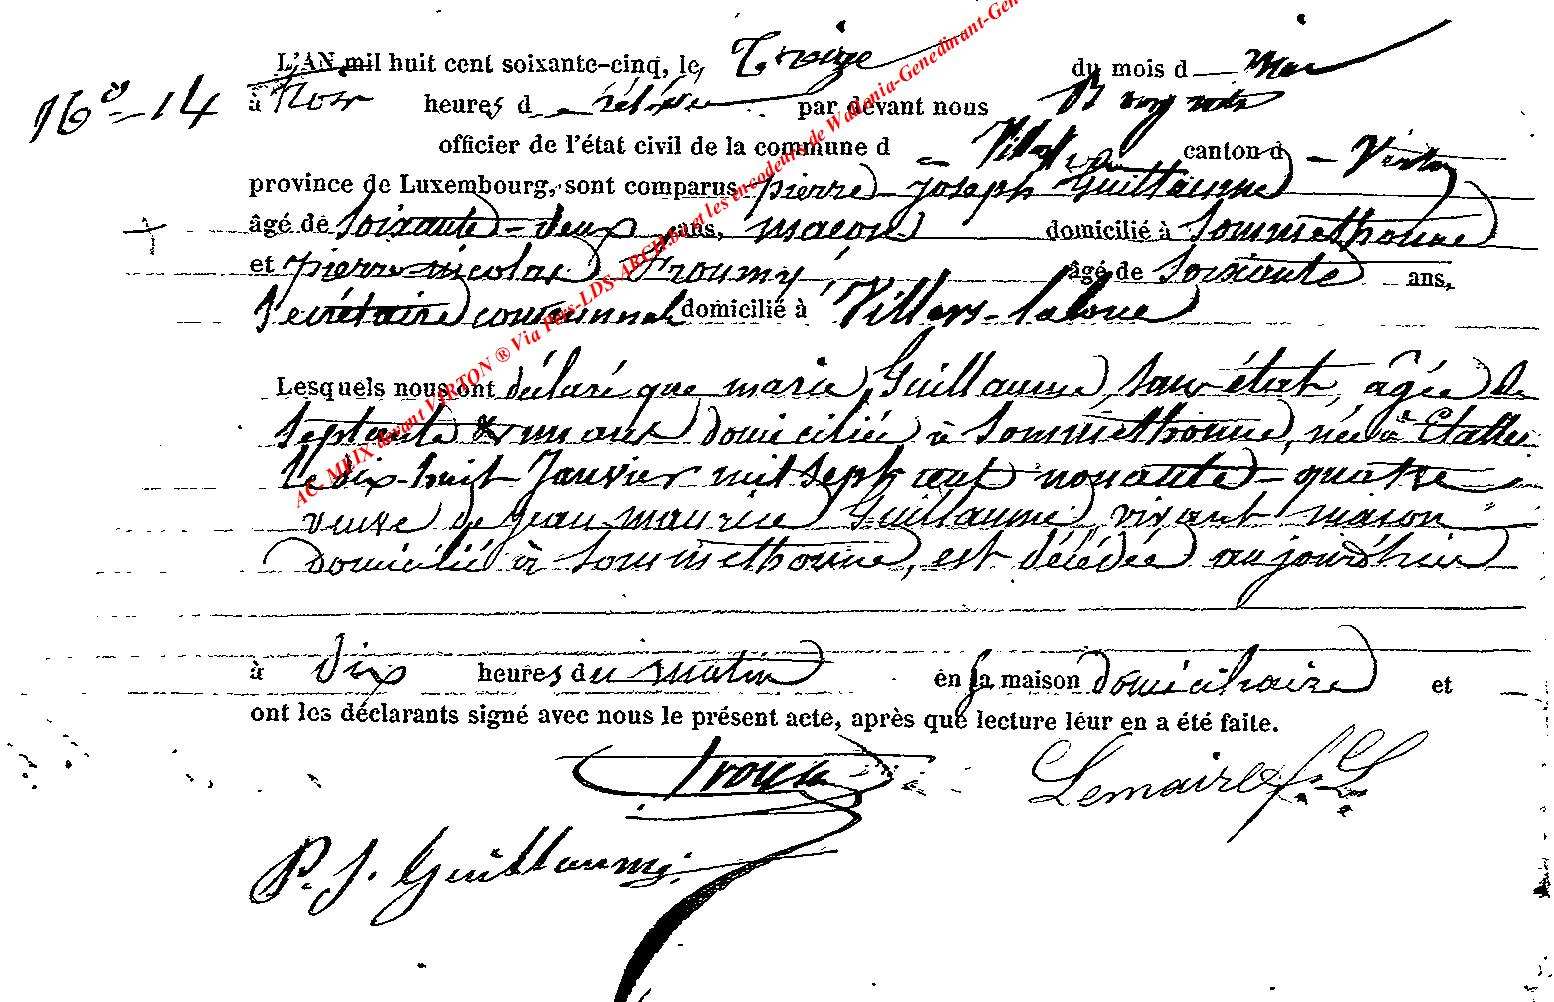 L'AN mil huit cent soixante-cinq, le Treize du mois d mai
16° - 14 à trois heures d par devant nous
officier de l'état civil de la commune d canton d Virton
province de Luxembourg, sont comparus pierre joseph Guillaume
âgé de soixante-deux ans, maçon domicilié à Sommethonne
et pierre nicolas Froumy, âgé de soixante ans,
Secrétaire communal domicilié à Villers-la loue
Lesquels nous ont déclaré que marie Guillaume, sans état, âgée de
septante & un ans domiciliée à Sommethonne, née à Etalle
le dix-huit Janvier mil sept cent nonante-quatre
veuve de jean maurice Guillaume, vivant maçon
domicilié à Sommethonne, est décédée aujourd'hui
à dix heures du matin en sa maison domiciliaire et
ont les déclarants signé avec nous le présent acte, après que lecture leur en a été faite.
Froumy Lemaire
P. J. Guillaume
AC MLIX devant VIRTON ® Via Pers-LDS-ARCH.be et les encodeurs de Wallonia-Genedinant-Gen